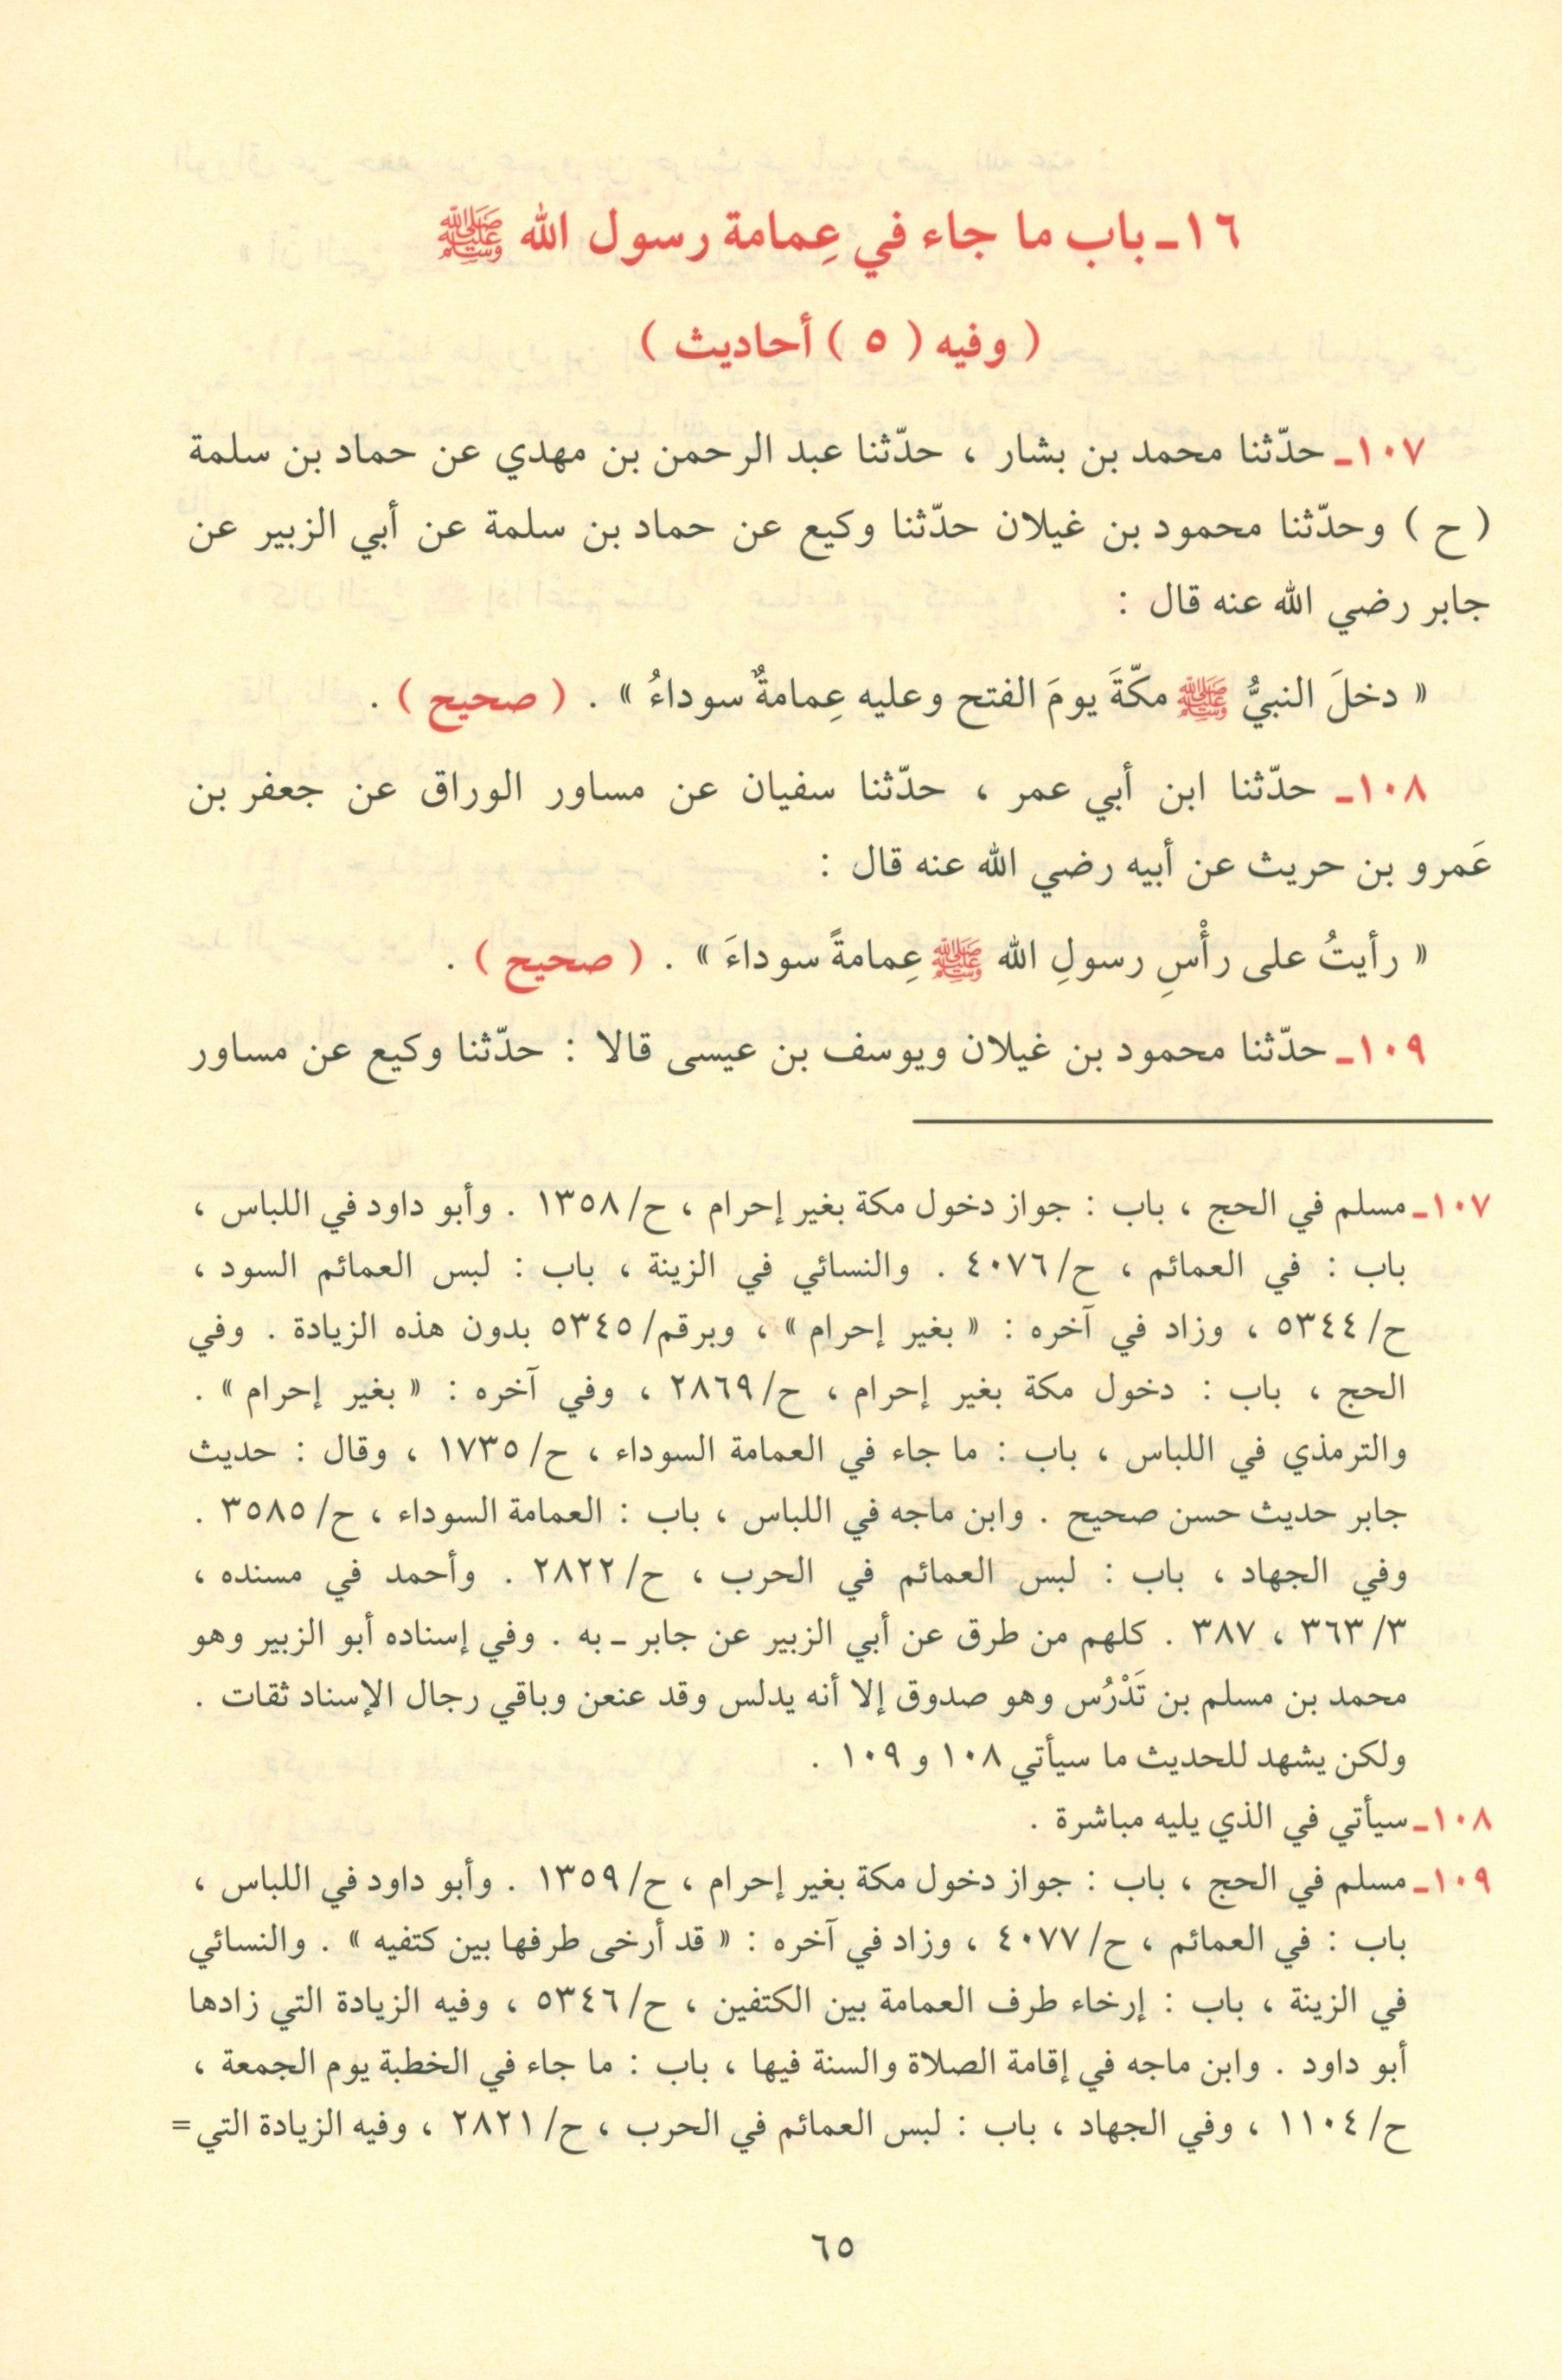 ١٦ـ باب ما جاء في عِمامة رسول الله ﷺ
( وفيه ( ٥ ) أحاديث )
١٠٧ـ حدّثنا محمد بن بشار ، حدّثنا عبد الرحمن بن مهدي عن حماد بن سلمة
( ح ) وحدّثنا محمود بن غيلان حدّثنا وكيع عن حماد بن سلمة عن أبي الزبير عن
جابر رضي الله عنه قال :
« دخلَ النبيُّ ﷺ مكّةَ يومَ الفتح وعليه عِمامةٌ سوداءُ » . ( صحيح ) .
١٠٨ـ حدّثنا ابن أبي عمر ، حدّثنا سفيان عن مساور الوراق عن جعفر بن
عَمرو بن حريث عن أبيه رضي الله عنه قال :
« رأيتُ على رأْسِ رسولِ الله ﷺ عِمامةً سوداءَ » . ( صحيح ) .
١٠٩ـ حدّثنا محمود بن غيلان ويوسف بن عيسى قالا : حدّثنا وكيع عن مساور
١٠٧ـ مسلم في الحج ، باب : جواز دخول مكة بغير إحرام ، ح/ ١٣٥٨ . وأبو داود في اللباس ،
باب : في العمائم ، ح/ ٤٠٧٦ . والنسائي في الزينة ، باب : لبس العمائم السود ،
ح/ ٥٣٤٤ ، وزاد في آخره : « بغير إحرام » ، وبرقم/ ٥٣٤٥ بدون هذه الزيادة . وفي
الحج ، باب : دخول مكة بغير إحرام ، ح/ ٢٨٦٩ ، وفي آخره : « بغير إحرام » .
والترمذي في اللباس ، باب : ما جاء في العمامة السوداء ، ح/ ١٧٣٥ ، وقال : حديث
جابر حديث حسن صحيح . وابن ماجه في اللباس ، باب : العمامة السوداء ، ح/ ٣٥٨٥ .
وفي الجهاد ، باب : لبس العمائم في الحرب ، ح/ ٢٨٢٢ . وأحمد في مسنده ،
٣/ ٣٦٣ ، ٣٨٧ . كلهم من طرق عن أبي الزبير عن جابر ـ به . وفي إسناده أبو الزبير وهو
محمد بن مسلم بن تَدْرُس وهو صدوق إلا أنه يدلس وقد عنعن وباقي رجال الإسناد ثقات .
ولكن يشهد للحديث ما سيأتي ١٠٨ و ١٠٩ .
١٠٨ـ سيأتي في الذي يليه مباشرة .
١٠٩ـ مسلم في الحج ، باب : جواز دخول مكة بغير إحرام ، ح/ ١٣٥٩ . وأبو داود في اللباس ،
باب : في العمائم ، ح/ ٤٠٧٧ ، وزاد في آخره : « قد أرخى طرفها بين كتفيه » . والنسائي
في الزينة ، باب : إرخاء طرف العمامة بين الكتفين ، ح/ ٥٣٤٦ ، وفيه الزيادة التي زادها
أبو داود . وابن ماجه في إقامة الصلاة والسنة فيها ، باب : ما جاء في الخطبة يوم الجمعة ،
ح/ ١١٠٤ ، وفي الجهاد ، باب : لبس العمائم في الحرب ، ح/ ٢٨٢١ ، وفيه الزيادة التي =
٦٥